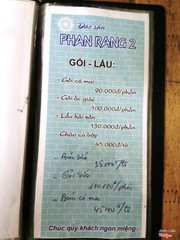 Đặc sản
PHAN RANG 2
GỎI - LẨU:
- Gỏi cá mai
90.000đ/phần
- Gỏi ốc giác
100.000đ/phần
- Lẩu hải sản
150.000đ/phần
- Cháo cá bớp
45.000đ/tô
35.000đ/tô
- Gỏi
100.000đ/phần
45.000đ/tô
Chúc quý khách ngon miệng